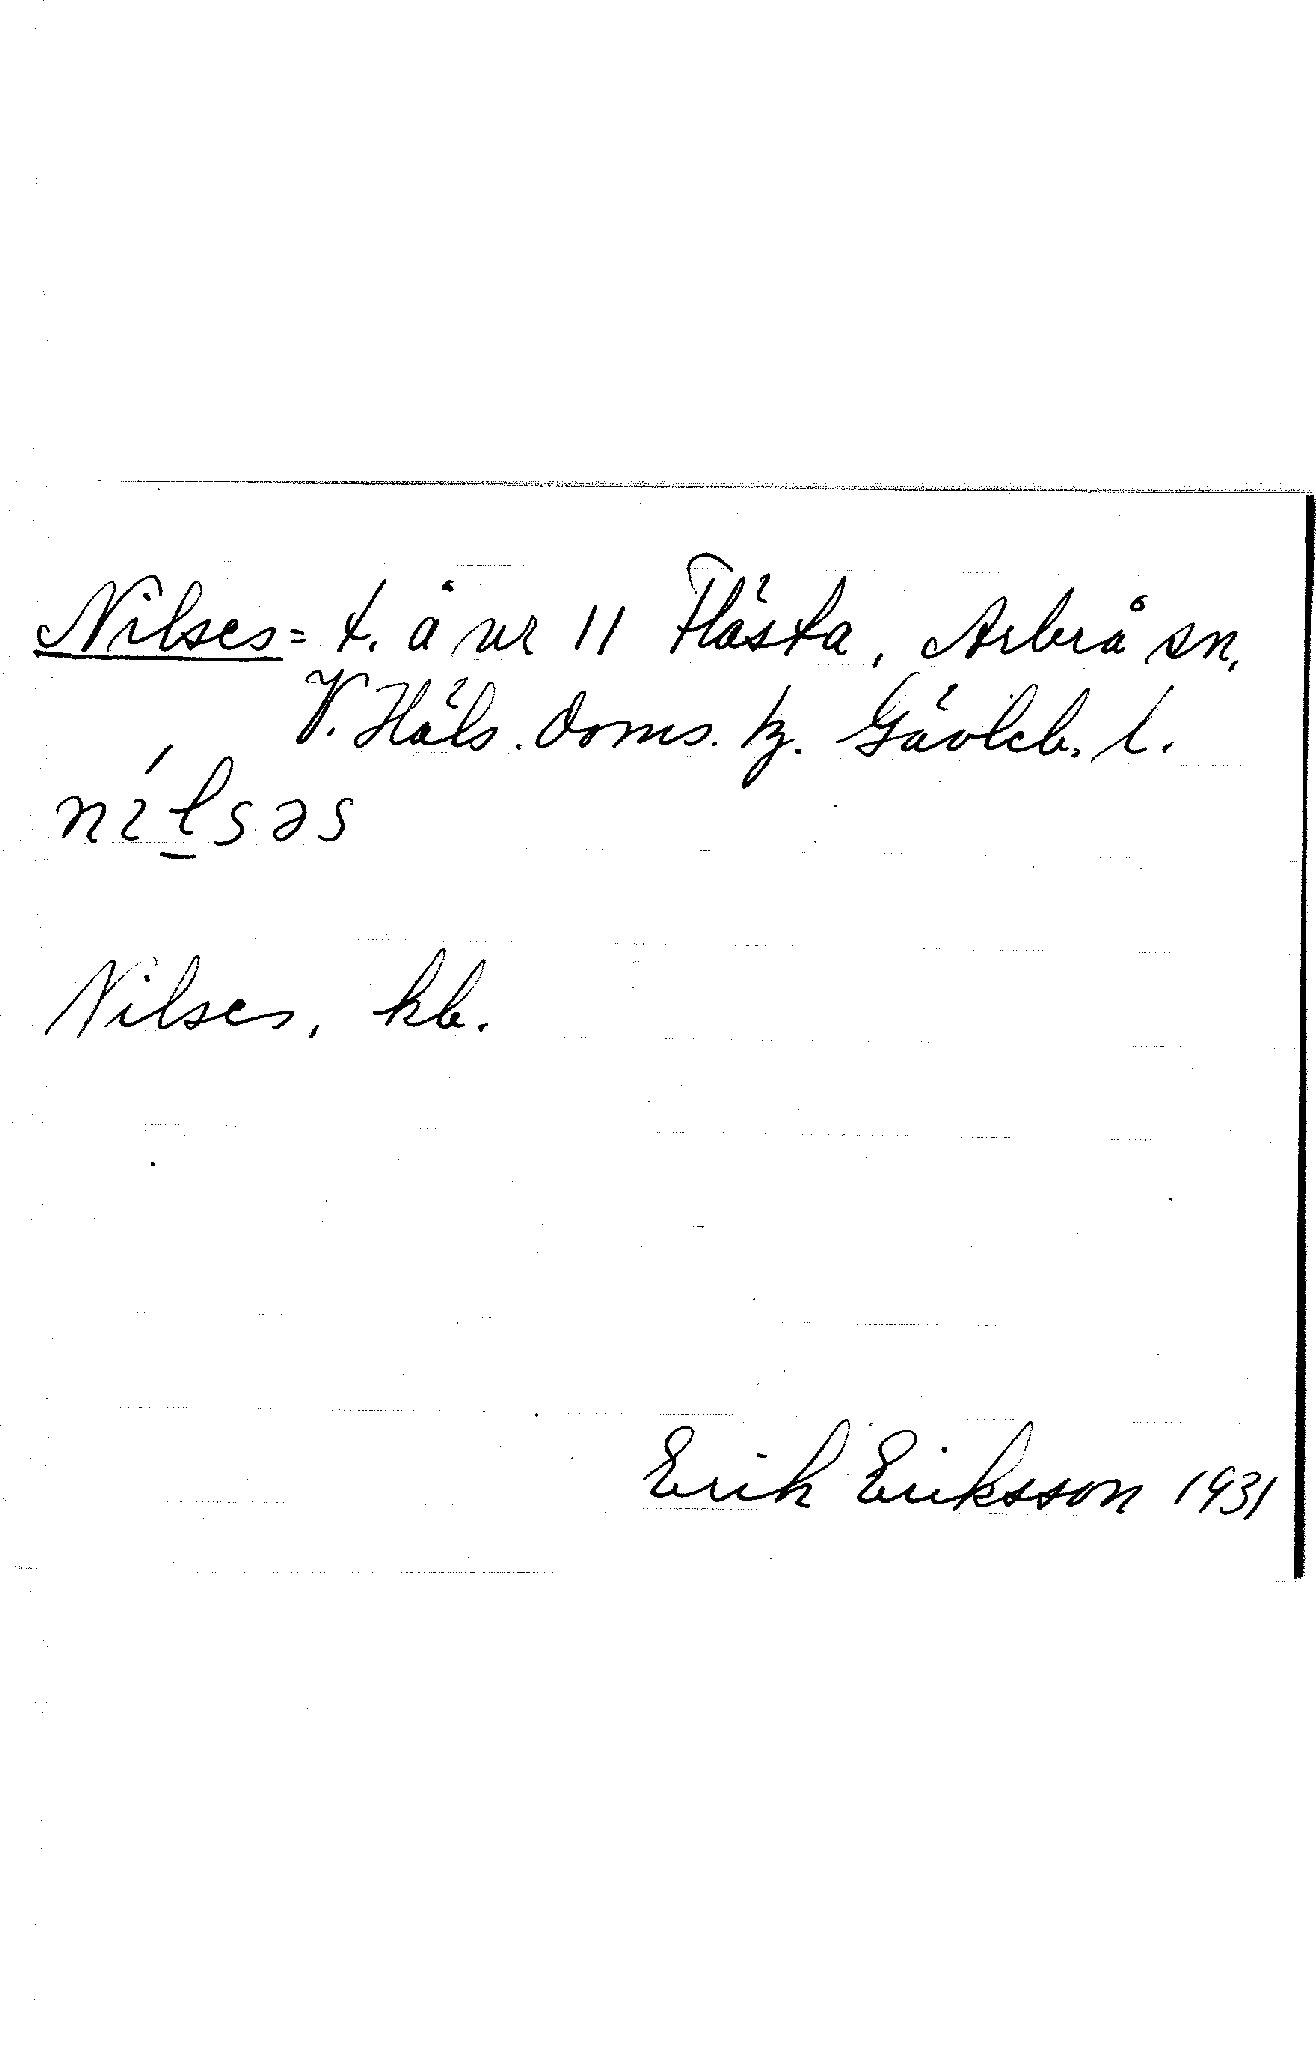 Nilses = t. å nr 11 Flästa, Arbrå sn,
V. Häls. doms. tg. Gävleb. l.
nílsəs
Nilses, kb.
Erik Eriksson 1931